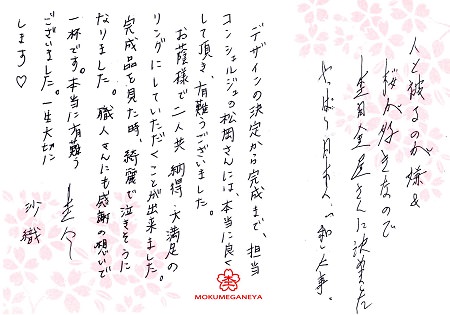 人と被るのが嫌&
桜が好きなので
杢目金屋さんに決めました
やっぱり日本人、「和」大事。
デザインの決定から完成まで、担当
コンシェルジュの松岡さんには、本当に良く
して頂き、有難うございました。
お蔭様で二人共納得・大満足の
リングにしていただくことが出来ました。
完成品を見た時、綺麗で泣きそうに
なりました。職人さんにも感謝の想いで
一杯です。本当に有難う
ございました。一生大切に
します♡
沙織
MOKUMEGANEYA